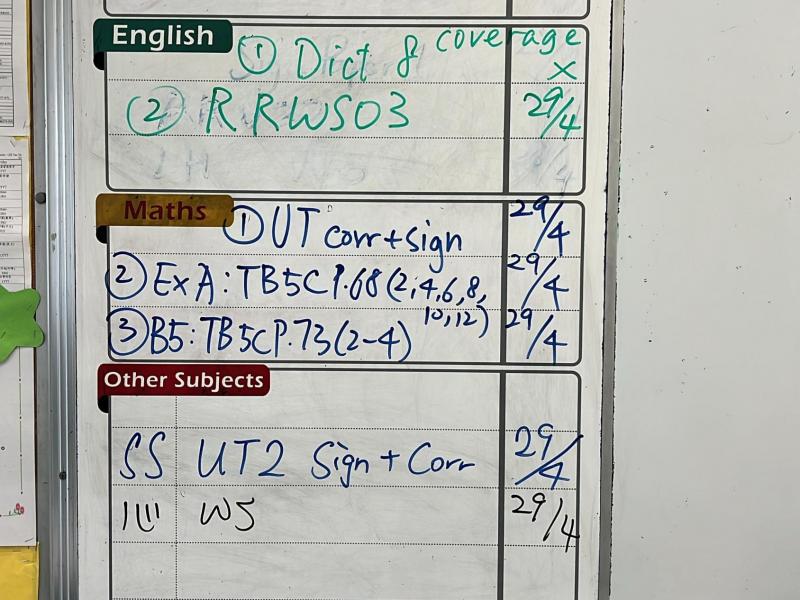 English
① Dict 8 coverage ×
② RRWS03 29/4
Maths
① UT corr+sign 29/4
② ExA: TB5C P.68(2,4,6,8, 29/4
10,12)
③ B5: TB5C P.73(2-4) 29/4
Other Subjects
SS UT2 Sign + Corr 29/4
心 W5 29/4